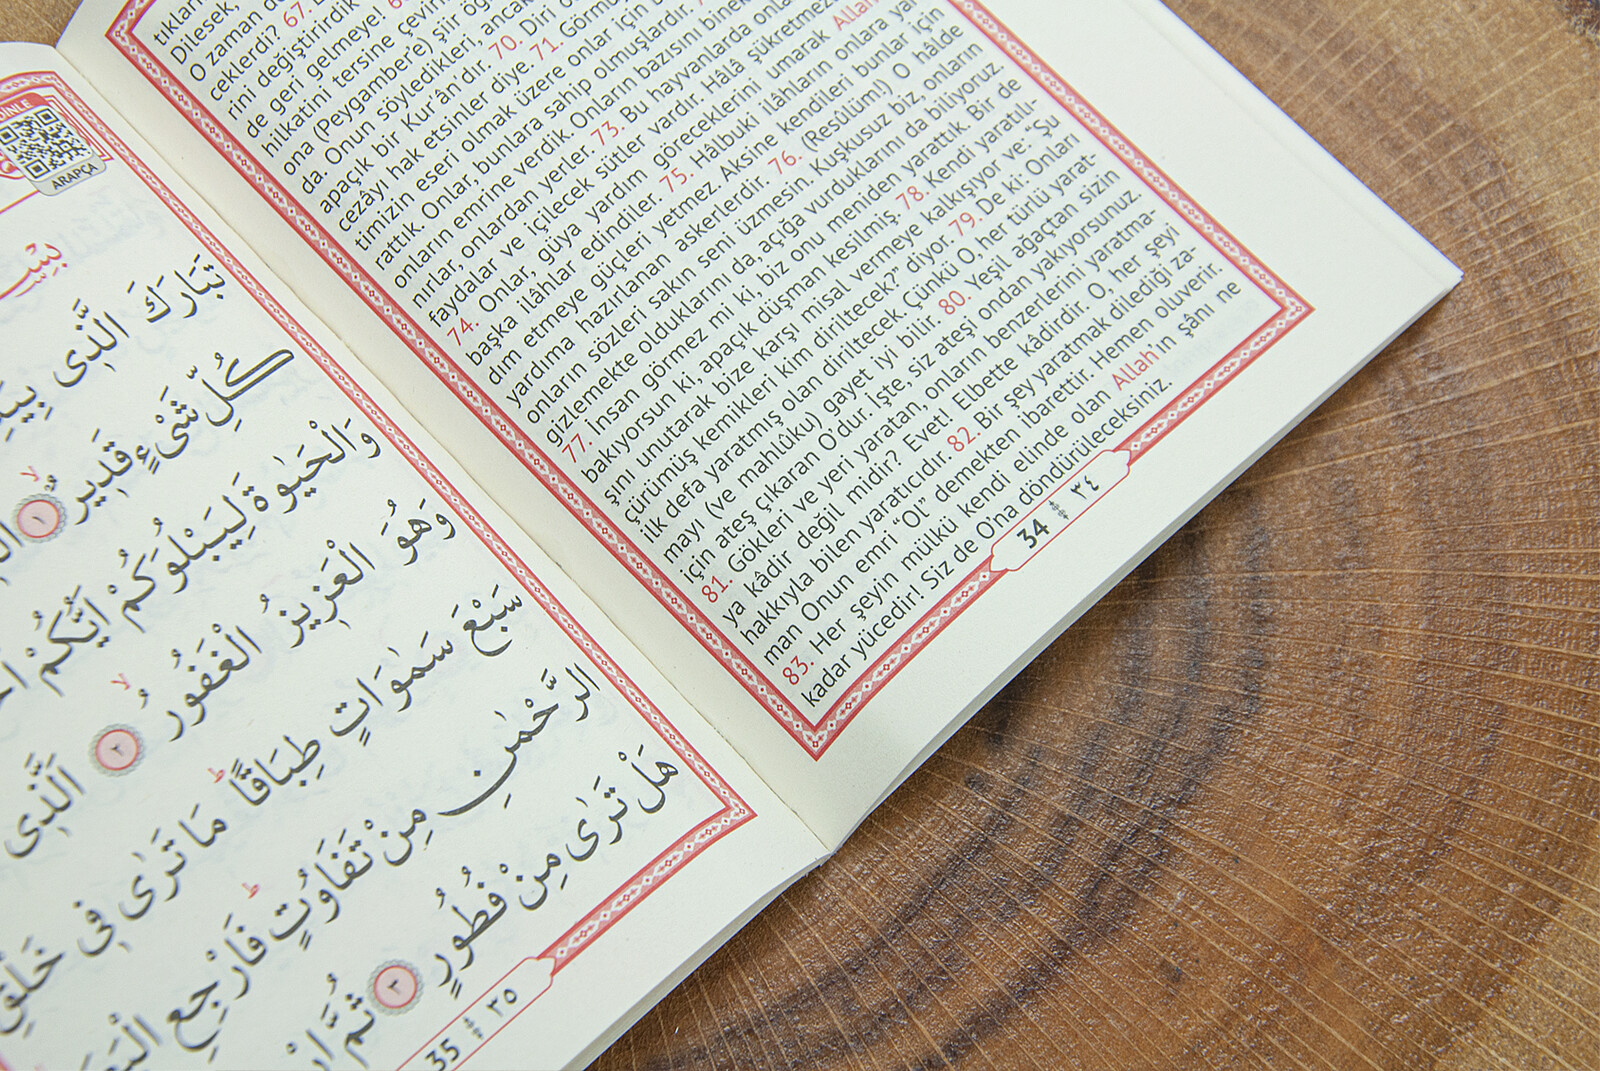 tıkların
Dilesek,
O zaman de
ceklerdi? 67.
rini değiştirdik
de geri gelmeye!
hilkatini tersine çevirir
ona (Peygambere) şiir öğ
da. Onun söyledikleri, ancak
apaçık bir Kur'ân'dır. 70. Diri o
cezâyı hak etsinler diye. 71. Görmü
timizin eseri olmak üzere onlar için b
rattık. Onlar, bunlara sahip olmuşlardır.
onların emrine verdik. Onların bazısını binek
nırlar, onlardan yerler. 73. Bu hayvanlarda onla
faydalar ve içilecek sütler vardır. Hâlâ şükretmeze
74. Onlar, güya yardım göreceklerini umarak Allah
başka ilâhlar edindiler. 75. Hâlbuki ilâhların onlara yar
dım etmeye güçleri yetmez. Aksine kendileri bunlar için
yardıma hazırlanan askerlerdir. 76. (Resûlüm!) O hâlde
onların sözleri sakın seni üzmesin. Kuşkusuz biz, onların
gizlemekte olduklarını da, açığa vurduklarını da biliyoruz
77. İnsan görmez mi ki, biz onu meniden yarattık. Bir de
bakıyorsun ki, apaçık düşman kesilmiş. 78. Kendi yaratılı-
şını unutarak bize karşı misal vermeye kalkışıyor ve: “Şu
çürümüş kemikleri kim diriltecek?” diyor. 79. De ki: Onları
ilk defa yaratmış olan diriltecek. Çünkü O, her türlü yarat-
mayı (ve mahlûku) gayet iyi bilir. 80. Yeşil ağaçtan sizin
için ateş çıkaran O'dur. İşte, siz ateşi ondan yakıyorsunuz.
81. Gökleri ve yeri yaratan, onların benzerlerini yaratma-
ya kâdir değil midir? Evet! Elbette kâdirdir. O, her şeyi
hakkıyla bilen yaratıcıdır. 82. Bir şey yaratmak dilediği za-
man Onun emri “Ol” demekten ibarettir. Hemen oluverir.
83. Her şeyin mülkü kendi elinde olan Allah'ın şânı ne
kadar yücedir! Siz de O'na döndürüleceksiniz.
34 ٣٤
DİNLE
ARAPÇA
بِسْــ
تَبَارَكَ الَّذٖى بِيَدِ
كُلِّ شَىْءٍ قَدٖيرٌ ١
وَالْحَيٰوةَ لِيَبْلُوَكُمْ اَيُّكُمْ
وَهُوَ الْعَزٖيزُ الْغَفُورُ ٢ اَلَّذٖى
سَبْعَ سَمٰوَاتٍ طِبَاقًا مَا تَرٰى فٖى خَلْقِ
الرَّحْمٰنِ مِنْ تَفَاوُتٍ فَارْجِعِ الْبَصَ
هَلْ تَرٰى مِنْ فُطُورٍ ٣ ثُمَّ ارْ
35 ٣٥